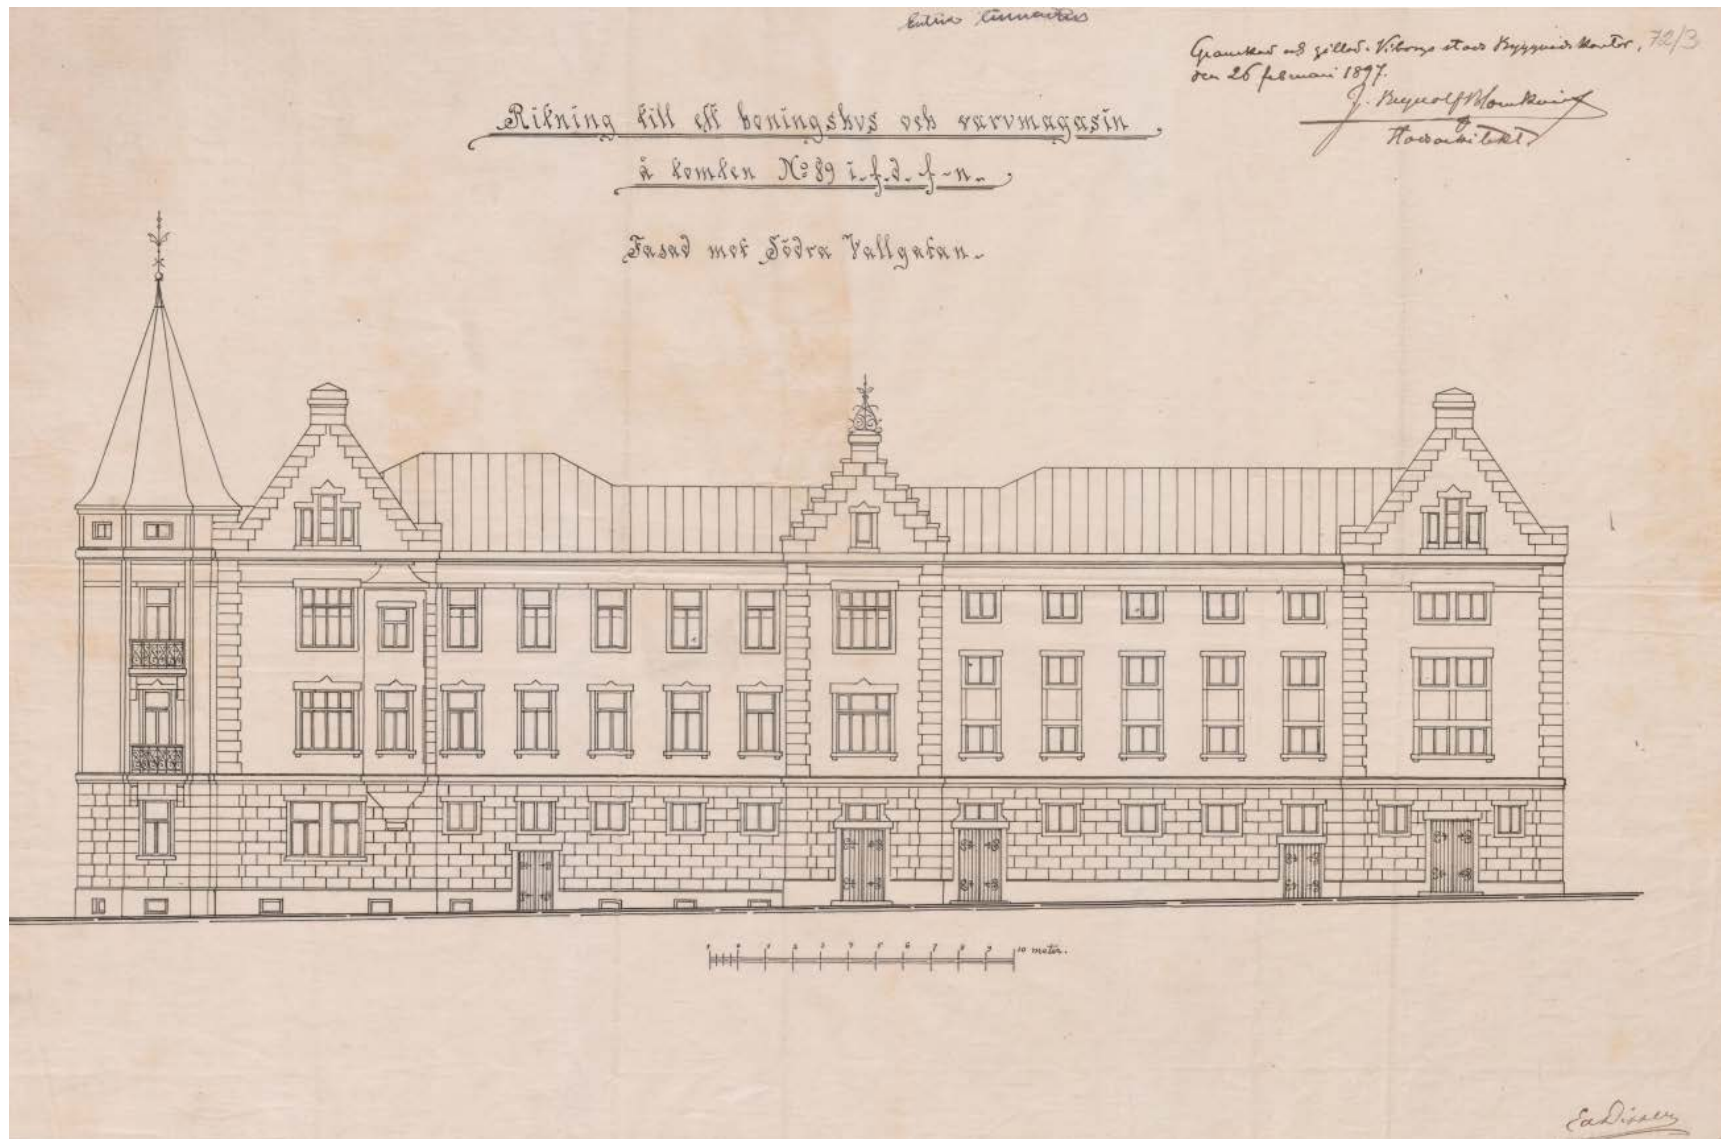 72/3
Granskad och gillad. Viborgs stads Byggnadskontor,
den 26 februari 1897.
J. Brynolf Blomkvist
Stadsarkitekt
Ritning till ett boningshus och varumagasin
å tomten No 89 i. f. d. f-n.
Fasad mot Södra Vallgatan.
1 0 1 2 3 4 5 6 7 8 9 10 meter.
Ed. Dippell